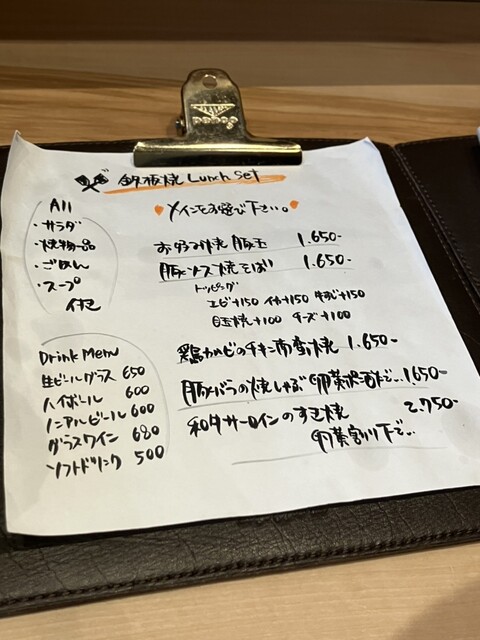 鉄板焼 Lunch Set
All
・サラダ
・焼物一品
・ごはん
・スープ
付き
メインをお選び下さい。
お好み焼 豚玉 1.650-
豚ソース焼そば 1.650-
トッピング
エビ+150 イカ+150 牛すじ+150
目玉焼+100 チーズ+100
鶏カルビのチキン南蛮焼 1.650-
豚バラの焼しゃぶ 卵黄ポン酢で.. 1.650-
和牛サーロインのすき焼 2.750-
卵黄割り下で..
Drink Menu
生ビールグラス 650
ハイボール 600
ノンアルビール 600
グラスワイン 680
ソフトドリンク 500